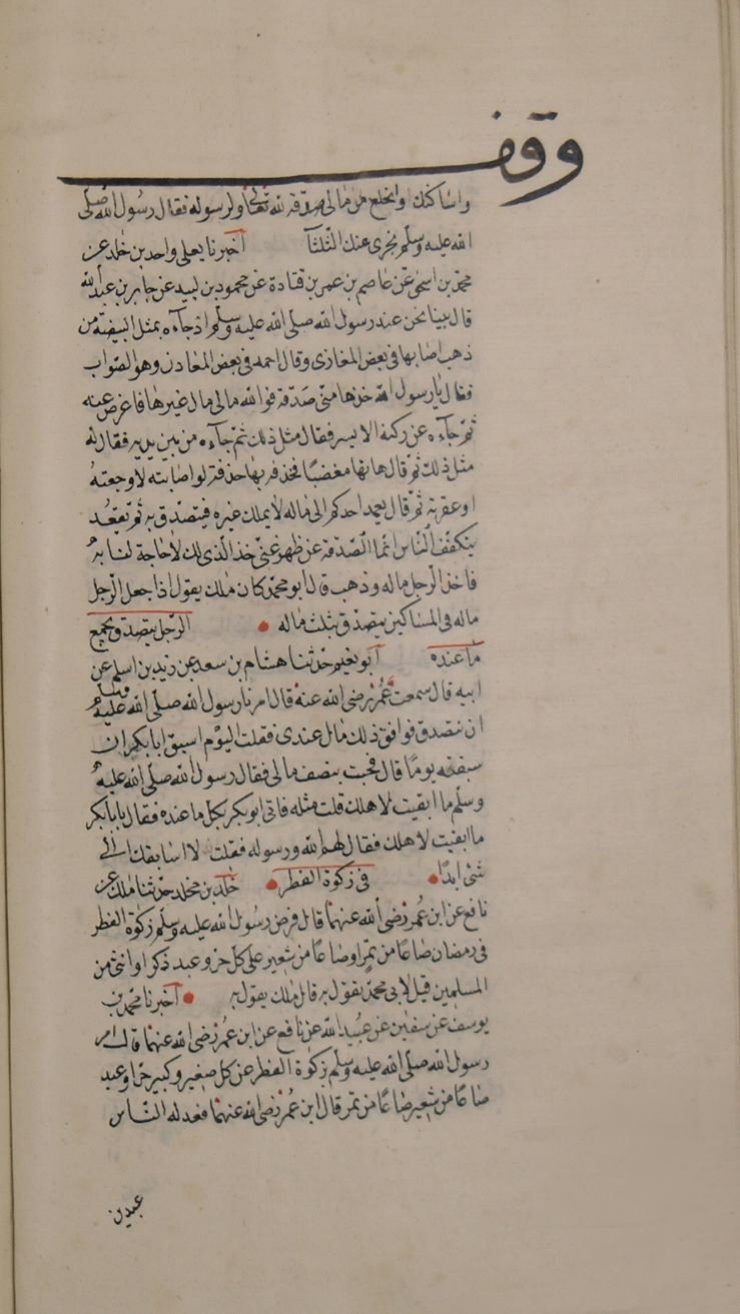 وقف
واساكنك وانخلع من مالى صدقة لله تعالى ولرسوله فقال رسول الله صلى
الله عليه وسلم يجزى عنك الثلث اخبرنا يعلى واحمد بن خالد عن
محمد بن اسحق عن عاصم بن عمر بن قتادة عن محمود بن لبيد عن جابر بن عبد الله
قال بينا نحن عند رسول الله صلى الله عليه وسلم اذ جآءه بمثل البيضة من
ذهب اصابها فى بعض المغازى وقال احمد فى بعض المعادن وهو الصواب
فقال يا رسول الله خذها منى صدقة فوالله مالى مال غيرها فاعرض عنه
ثم جآءه عن ركنه الايسر فقال مثل ذلك ثم جآءه من بين يديه فقال له
مثل ذلك ثم قال هاتها مغضبا فحذفه بها حذفة لو اصابته لاوجعته
او عقرته ثم قال يعمد احدكم الى ماله لا يملك غيره فيتصدق به ثم يقعد
يتكفف الناس انما الصدقة عن ظهر غنى خذ الذى لك لا حاجة لنا به
فاخذ الرجل ماله وذهب قال ابو محمد كان مالك يقول اذا جعل الرجل
ماله فى المساكين يتصدق بثلث ماله الرجل يتصدق بجميع
ما عنده ابو نعيم حدثنا هشام بن سعد عن زيد بن اسلم عن
ابيه قال سمعت عمر رضى الله عنه قال امرنا رسول الله صلى الله عليه وسلم
ان نتصدق فوافق ذلك مالا عندى فقلت اليوم اسبق ابا بكر ان
سبقته يوما قال فجئت بنصف مالى فقال رسول الله صلى الله عليه
وسلم ما ابقيت لاهلك قلت مثله فاتى ابو بكر بكل ما عنده فقال يا با بكر
ما ابقيت لاهلك فقال لهم الله ورسوله فقلت لا اسابقك الى
شئ ابدا فى زكوة الفطر خالد بن مخلد حدثنا مالك عن
نافع عن ابن عمر رضى الله عنهما قال فرض رسول الله عليه وسلم زكوة الفطر
فى رمضان صاعا من تمر او صاعا من شعير على كل حر وعبد ذكر او انثى من
المسلمين قيل لابى محمد تقول به قال مالك يقول به اخبرنا محمد بن
يوسف عن سفين عن عبيد الله عن نافع عن ابن عمر رضى الله عنهما قال امر
رسول الله صلى الله عليه وسلم زكوة الفطر عن كل صغير وكبير حر او عبد
صاعا من شعير صاعا من تمر قال ابن عمر رضى الله عنهما فعدله الناس